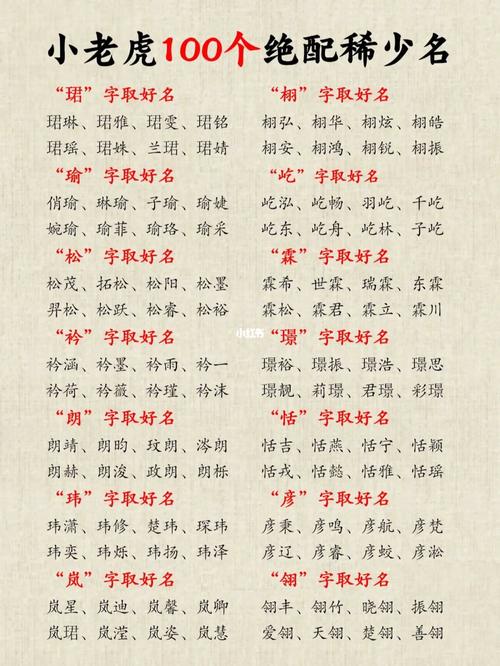 小老虎100个绝配稀少名
“珺”字取好名
珺琳、珺雅、珺雯、珺铭
珺瑶、珺姝、兰珺、珺婧
“栩”字取好名
栩弘、栩华、栩炫、栩皓
栩安、栩鸿、栩锐、栩振
“瑜”字取好名
俏瑜、琳瑜、子瑜、瑜婕
婉瑜、瑜菲、瑜珞、瑜采
“屹”字取好名
屹泓、屹畅、羽屹、千屹
屹东、屹舟、屹林、子屹
“松”字取好名
松茂、拓松、松阳、松墨
羿松、松跃、松睿、松裕
“霖”字取好名
霖希、世霖、瑞霖、东霖
霖松、霖君、霖立、霖川
小红书
“衿”字取好名
衿涵、衿墨、衿雨、衿一
衿荷、衿薇、衿瑾、衿沫
“璟”字取好名
璟裕、璟振、璟浩、璟思
璟靓、莉璟、君璟、彩璟
“朗”字取好名
朗靖、朗昀、玟朗、涔朗
朗赫、朗浚、政朗、朗栎
“恬”字取好名
恬吉、恬燕、恬宁、恬颖
恬戎、恬懿、恬雅、恬瑶
“玮”字取好名
玮潇、玮修、楚玮、琛玮
玮奕、玮烁、玮扬、玮泽
“彦”字取好名
彦秉、彦鸣、彦航、彦梵
彦辽、彦睿、彦蛟、彦淞
“岚”字取好名
岚星、岚迪、岚馨、岚卿
岚珺、岚滢、岚姿、岚慧
“翎”字取好名
翎丰、翎竹、晓翎、振翎
爱翎、天翎、楚翎、善翎